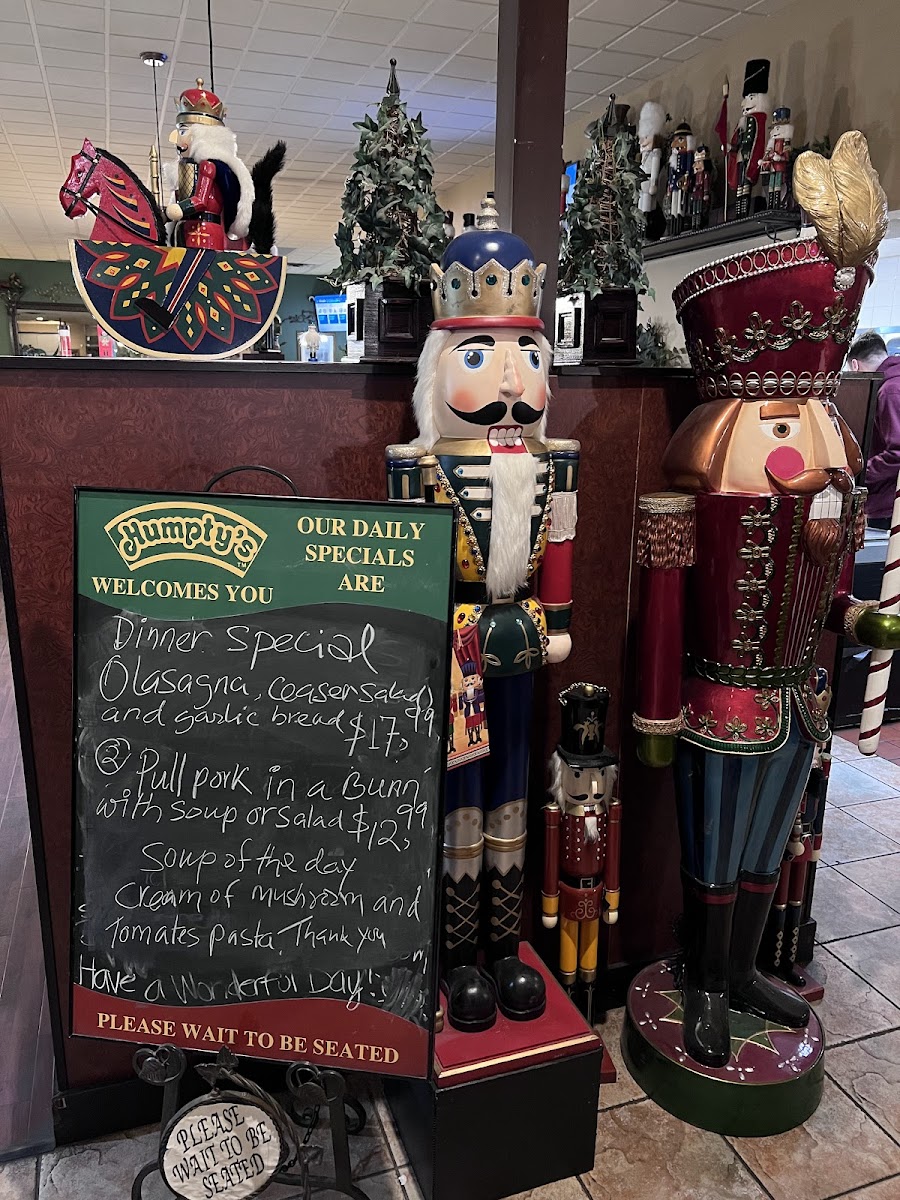 Humpty's™
WELCOMES YOU
OUR DAILY
SPECIALS
ARE
Dinner Special
① lasagna, ceaser salad,
and garlic bread $17,99
② Pull pork in a Bunn
with soup or salad $12,99
Soup of the day
Cream of mushroom and
Tomates pasta. Thank you
Have a Wonderful Day!
PLEASE WAIT TO BE SEATED
PLEASE
WAIT TO BE
SEATED